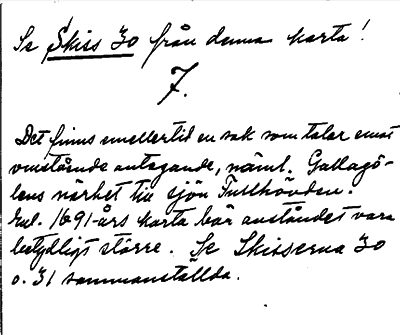 Se Skiss 30 från denna karta!
7.
Det finns emellertid en sak som talar emot
omstående antagande, näml. Gallagö-
lens närhet till sjön Tullhövden.
Enl. 1691-års karta bör avståndet vara
betydligt större. Se Skisserna 30
o. 31 sammanställda.